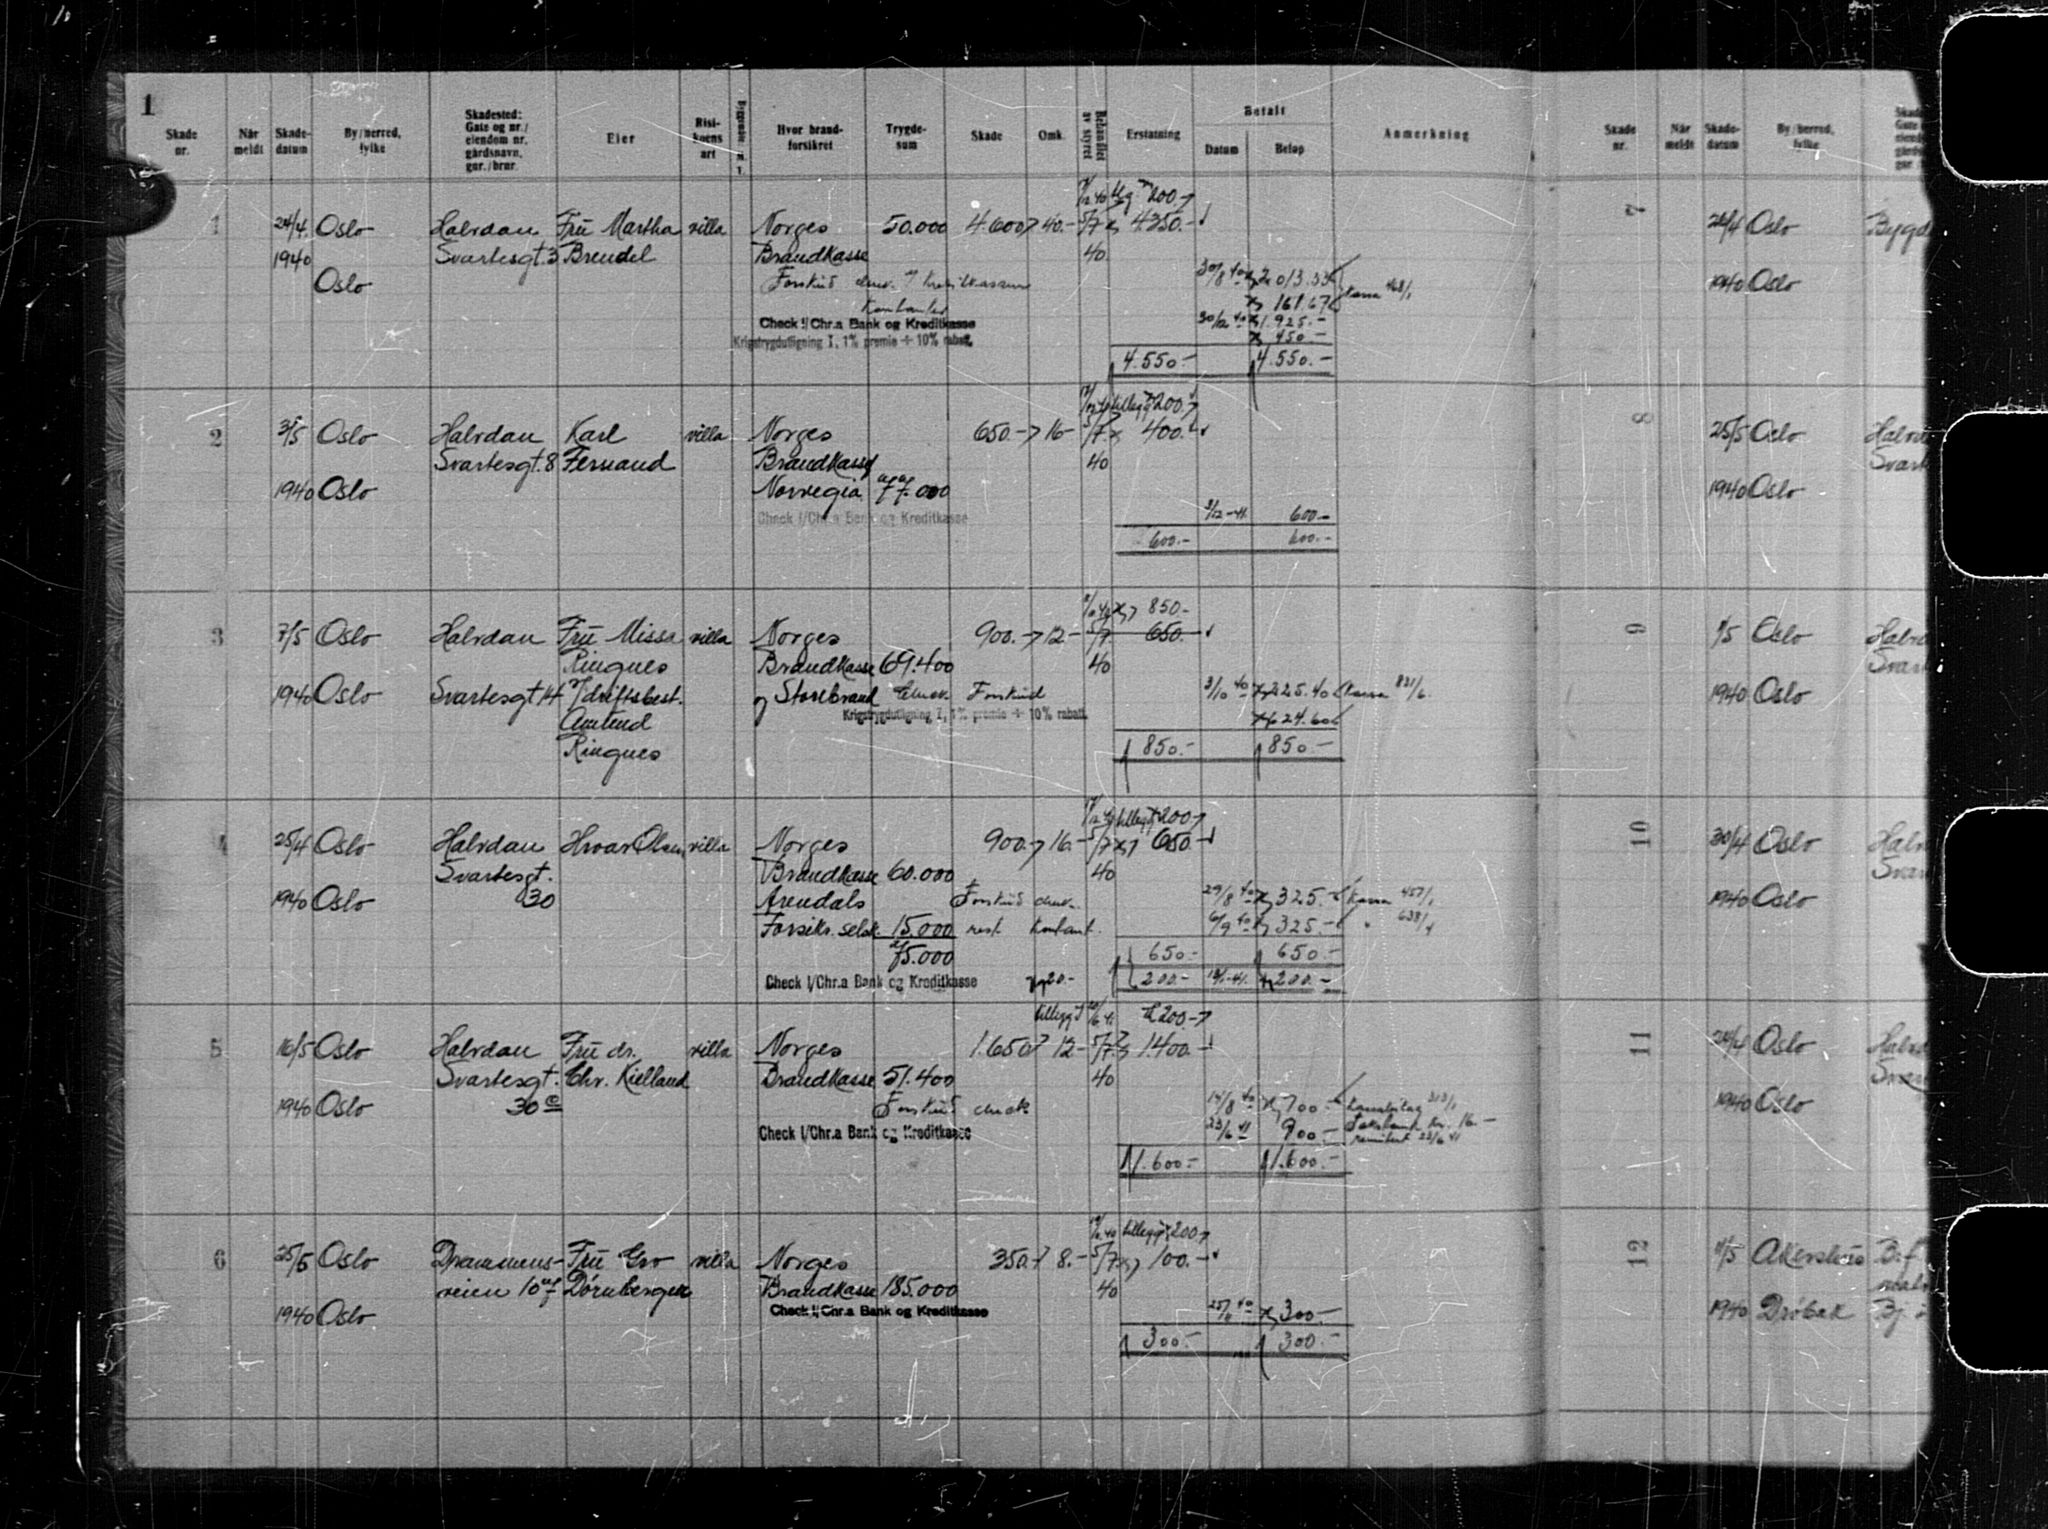 1
Skade nr.
Når meldt
Skade- datum
By/herred, fylke
Skadested: Gate og nr./ eiendom nr. gårdsnavn, gnr./brnr.
Eier
Risi- koens art
Hvor brand- forsikret
Trygde- sum
Skade
Omk.
Behandlet av styret
Erstatning
Betalt
Datum
Beløp
Anmerkning
Skade nr.
Når meldt
Skade- datum
By/herred, fylke
200.-
1 24/4 Oslo Halvdan Fru Martha villa Norges 50.000 4.600 40.- 5/7 4350.-
1940 Svartesgt. 3 Brendel Brandkasse 40
Oslo Forskud 30/8 40 2.013.33
Kontanter 161.67
Check i/Chr.a Bank og Kreditkasse 30/12 40 1.925.-
Krigstrygdutligning I, 1% premie ÷ 10% rabatt. 450.-
4.550.- 4.550.-
tillegg 200.-
2 3/5 Oslo Halvdan Karl villa Norges 650.- 16.- 5/7 400.-
Svartesgt. 8 Fernand Brandkasse 40
1940 Oslo Norvegia 77.000
Check i/Chr.a Bank og Kreditkasse 3/12-41. 600.-
600.- 600.-
850.-
3 7/5 Oslo Halvdan Fru Missa villa Norges 900.- 12.- 5/7 650.-
Ringnes Brandkasse 69.400 40
1940 Oslo Svartesgt 14 v/driftsbest. og Storebrand Check Forskud 3/10 40 225.40 Kassa 831/6
Amund Krigstrygdutligning I, 1% premie ÷ 10% rabatt. 624.60
Ringnes 850.- 850.-
tillegg 200.-
4 25/4 Oslo Halvdan Hroar Olsen villa Norges 900.- 16.- 5/7 650.-
Svartesgt. Brandkasse 60.000 40
1940 Oslo 30 Arendals Forskud 29/8 40 325.- Kassa 457/1
Forsikr. selsk. 15.000 rest kontant. 6/9 40 325.- " 638/4
75.000 650.- 650.-
Check i/Chr.a Bank og Kreditkasse 20.- 200.- 200.-
tillegg 200.-
5 16/5 Oslo Halvdan Fru dr. villa Norges 1.650 12.- 5/7 1.400.-
Svartesgt. Chr. Kielland Brandkasse 51.400 40
1940 Oslo 30 c Forskud check 14/8 40 700.-
Check i/Chr.a Bank og Kreditkasse 23/6 41 900.- remittert 23/6 41
1.600.- 1.600.-
tillegg 200.-
6 25/5 Oslo Drammens- Fru Gro villa Norges 350.- 8.- 5/7 100.-
veien 10 Dörnberger Brandkasse 185.000 40
1940 Oslo Check i/Chr.a Bank og Kreditkasse 300.-
300.- 300.-
7 24/4 Oslo
1940 Oslo
8 25/5 Oslo
1940 Oslo
9 Oslo
1940 Oslo
10 30/4 Oslo
1940 Oslo
11 24/4 Oslo
1940 Oslo
12 Akershus
1940 Drøbak